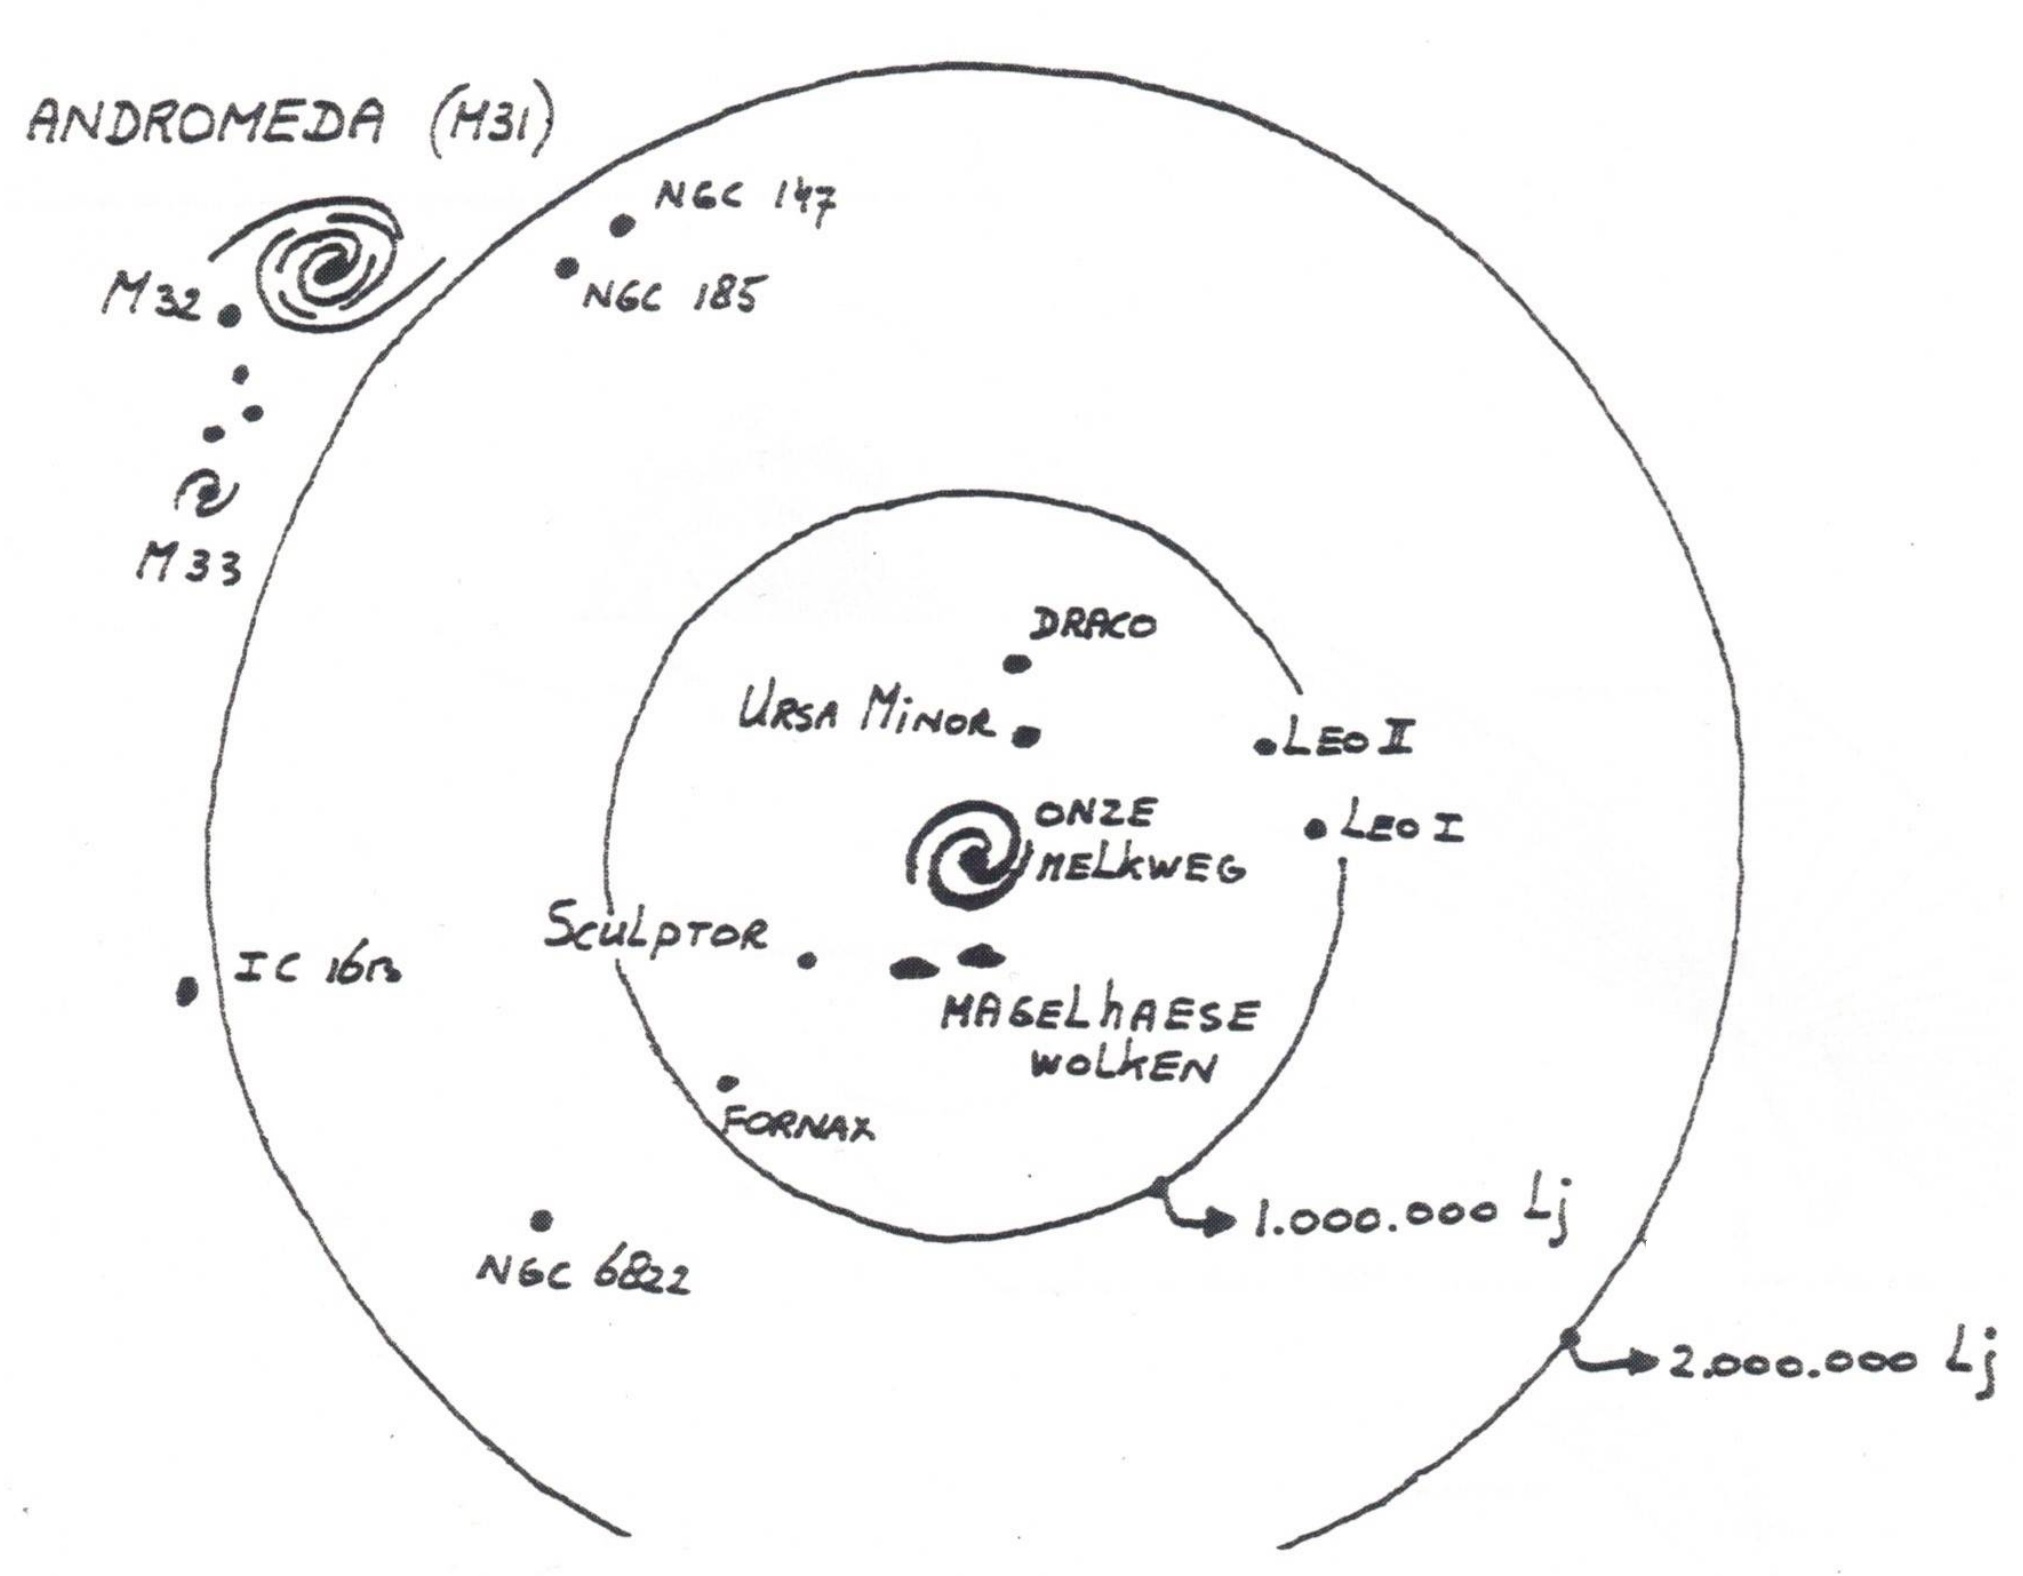 ANDROMEDA (M31)
NGC 147
M32
NGC 185
M33
DRACO
URSA MINOR
LEO II
ONZE
MELKWEG
LEO I
SCULPTOR
IC 1613
MAGELHAESE
WOLKEN
FORNAX
1.000.000 Lj
NGC 6822
2.000.000 Lj